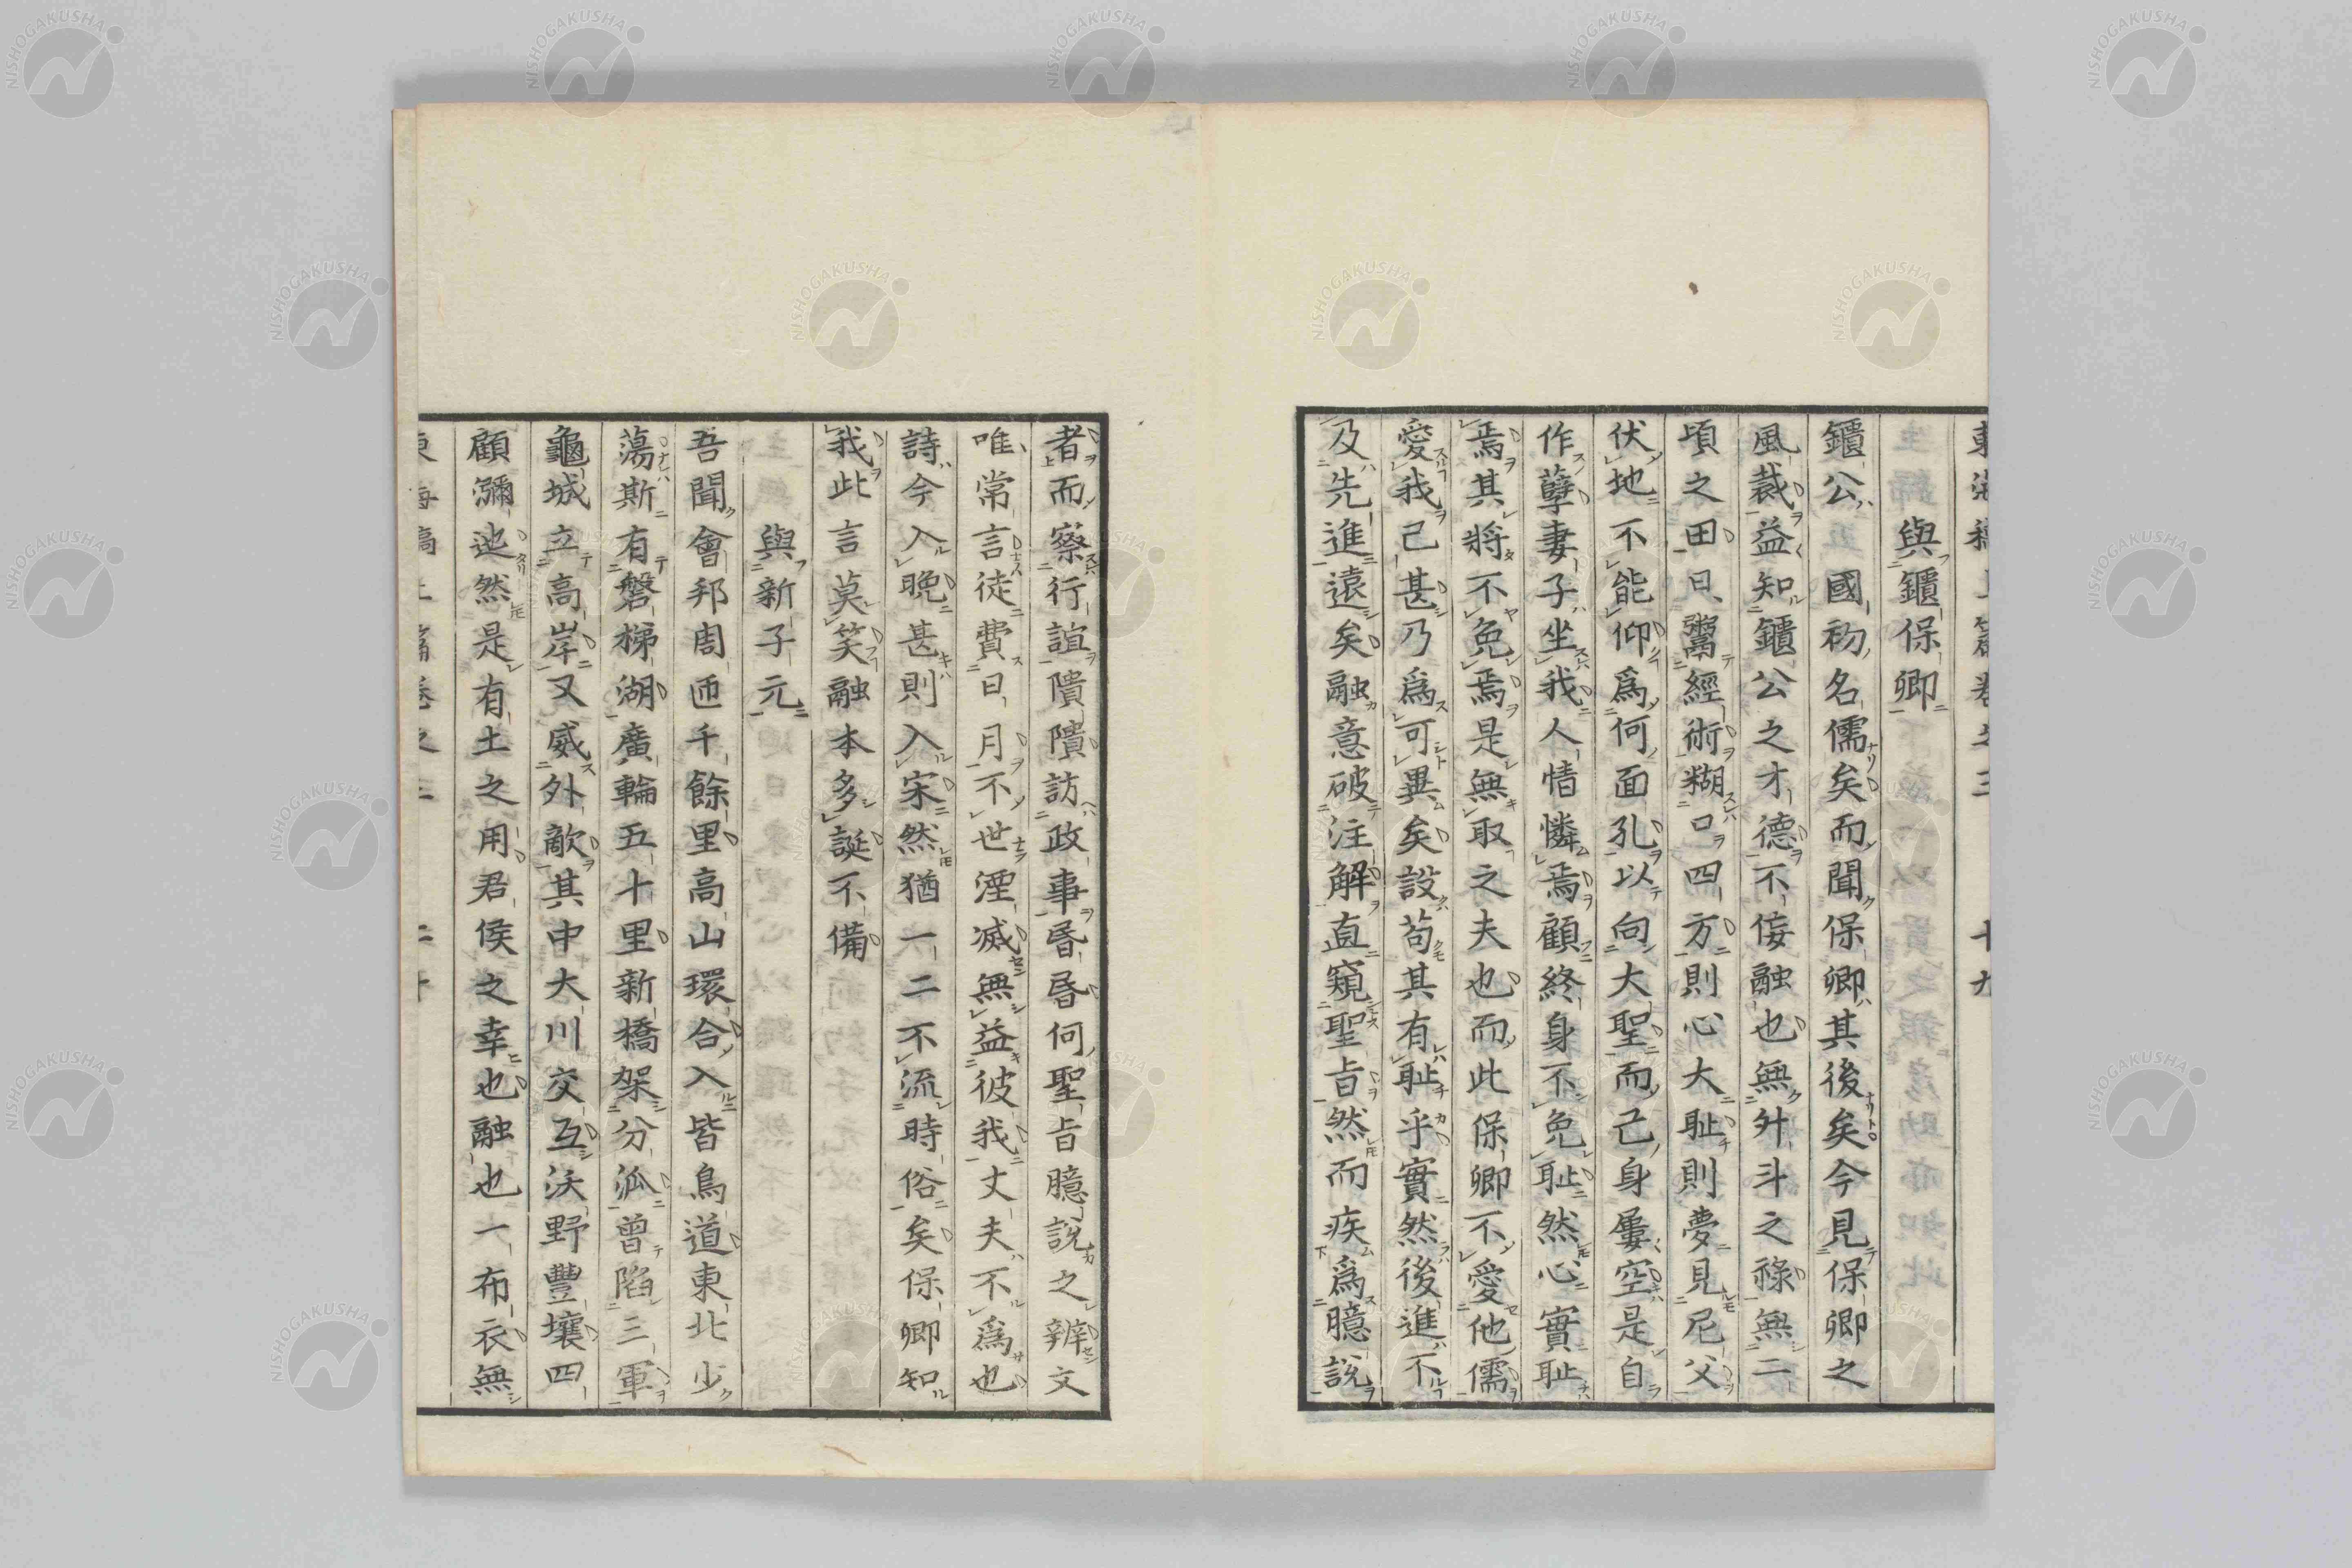 與鑎保卿
鑎公近國初名儒矣而聞保卿其後矣今見保卿之
風裁益知鑎公之才德不侫融也無升斗之祿無二
頃之田日鬻經術糊口四方則心大耻則夢見尼父
伏地不能仰爲何面孔以向大聖而己身屢空是自
作孽妻子坐我人情憐焉顧終身不免耻然心實耻
焉其將不免焉是無取之夫也而此保卿不愛他儒
愛我己甚乃爲可異矣設苟其有耻乎實然後進不
及先進遠矣融意破注解直窺聖旨然而疾爲臆說
者而察行誼隤隤訪政事昏昏何聖旨臆說之辨文
唯常言徒費日月不世湮滅無益彼我丈夫不爲也
詩今入晩甚則入宋然猶一二不流時俗矣保卿知
我此言莫笑融本多誕不備
與新子元
吾聞會邦周匝千餘里高山環合入皆鳥道東北少
蕩斯有磐梯湖廣輪五十里新橋架分派曾陷三軍
龜城立高岸又威外敵其中大川交互沃野豐壤四
顧瀰迆然是有土之用君侯之幸也融也一布衣無